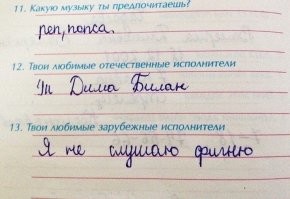 11. Какую музыку ты предпочитаешь?
реп, попса.
12. Твои любимые отечественные исполнители
Дима Билан
13. Твои любимые зарубежные исполнители
Я не слушаю фигню